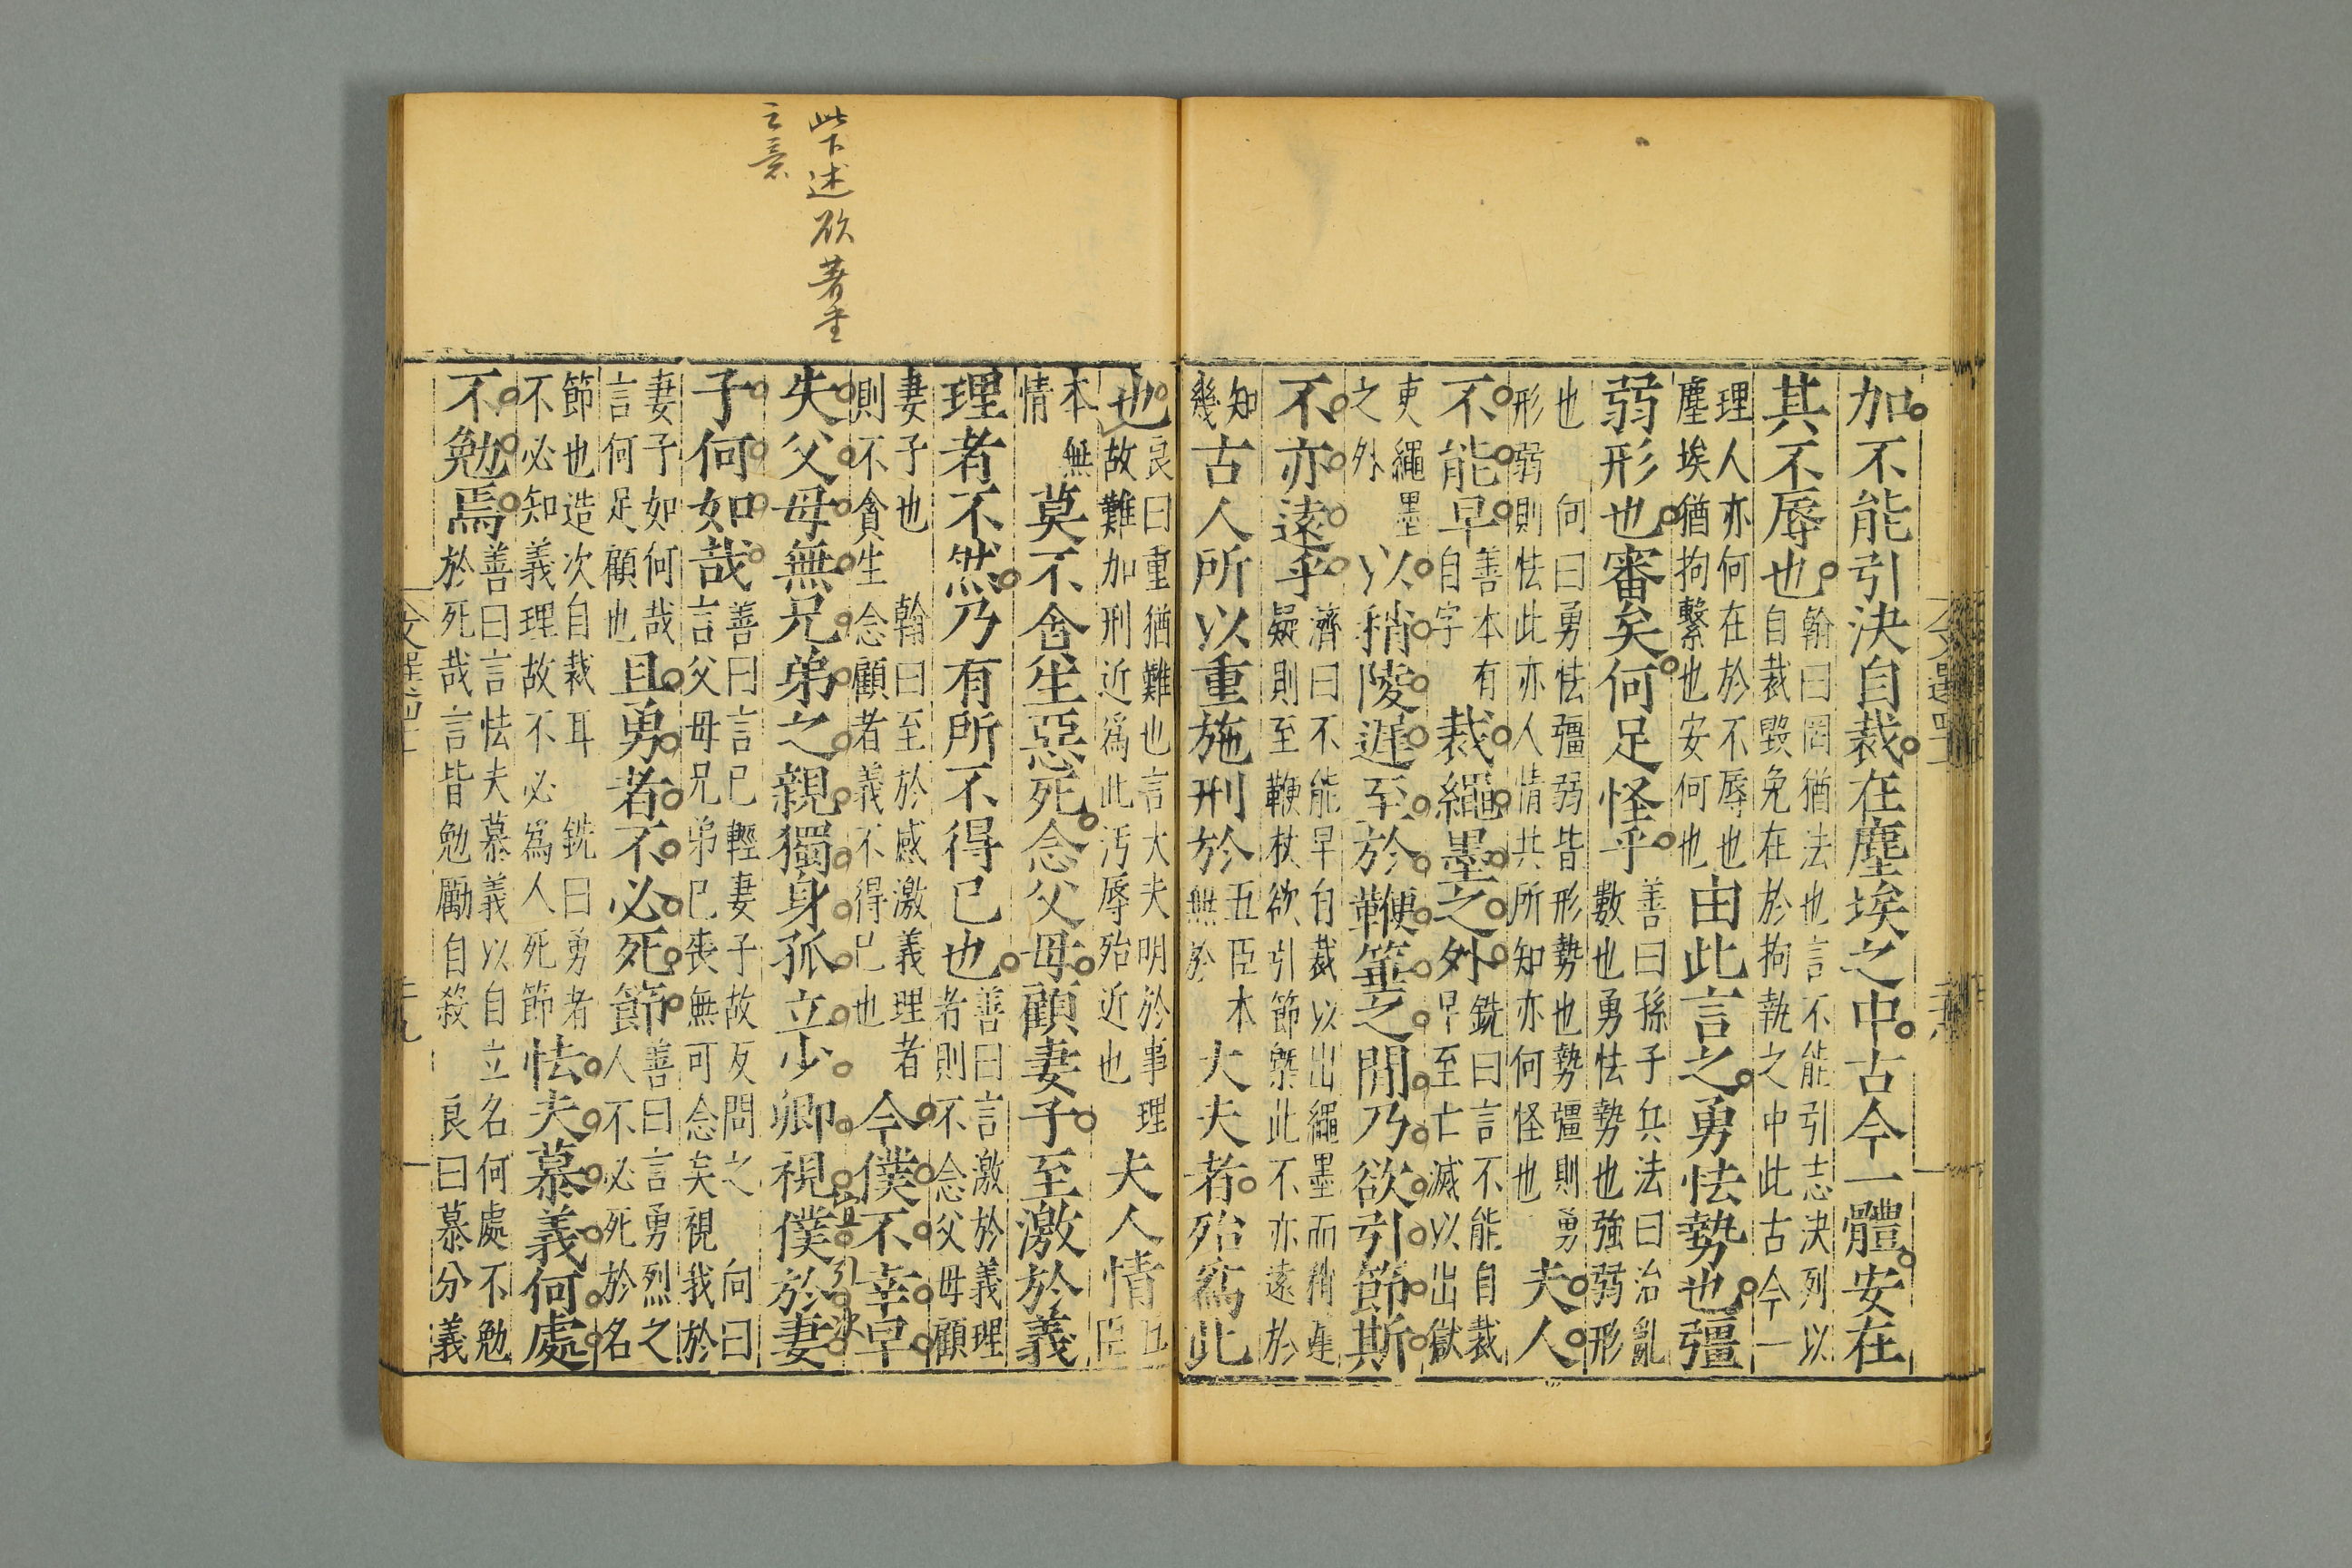 加不能引決自裁在塵埃之中古今一體安在
其不辱也翰曰罔猶法也言不能引志決列以
自裁毀免在於拘執之中此古今一
理人亦何在於不辱也
塵埃猶拘繫也安何也由此言之勇怯勢也彊
弱形也審矣何足怪乎善曰孫子兵法曰治亂
數也勇怯勢也強弱形
也 向曰勇怯彊弱皆形勢也勢彊則勇
形弱則怯此亦人情共所知亦何怪也夫人
不能早善本有
自字裁繩墨之外銑曰言不能自裁
早至亡滅以出獄
吏繩墨
之外以稍陵遲至於鞭箠之閒乃欲引節斯
不亦遠乎濟曰不能早自裁以出繩墨而稍遲
疑則至鞭杖欲引節槩此不亦遠於
知
幾古人所以重施刑於五臣本
無於大夫者殆爲此
也良曰重猶難也言大夫明於事理
故難加刑近爲此汚辱殆近也夫人情五
臣
本無
情莫不貪生惡死念父母顧妻子至激於義
理者不然乃有所不得已也善曰言激於義理
者則不念父母顧
妻子也 翰曰至於感激義理者
則不貪生念顧者義不得已也今僕不幸早
失父母無兄弟之親獨身孤立少卿視僕於妻
子何如哉善曰言已輕妻子故反問之 向曰
言父母兄弟已喪無可念矣視我於
妻子如何哉
言何足顧也且勇者不必死節善曰言勇烈之
人不必死於名
節也造次自裁耳 銑曰勇者
不必知義理故不必爲人死節怯夫慕義何處
不勉焉善曰言怯夫慕義以自立名何處不勉
於死哉言皆勉勵自殺 良曰慕分義
此下述欲著書
之意
宜引決